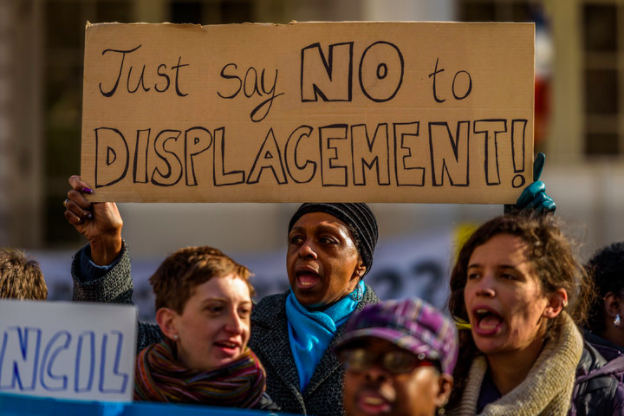 Just say NO to
DISPLACEMENT!
NCIL